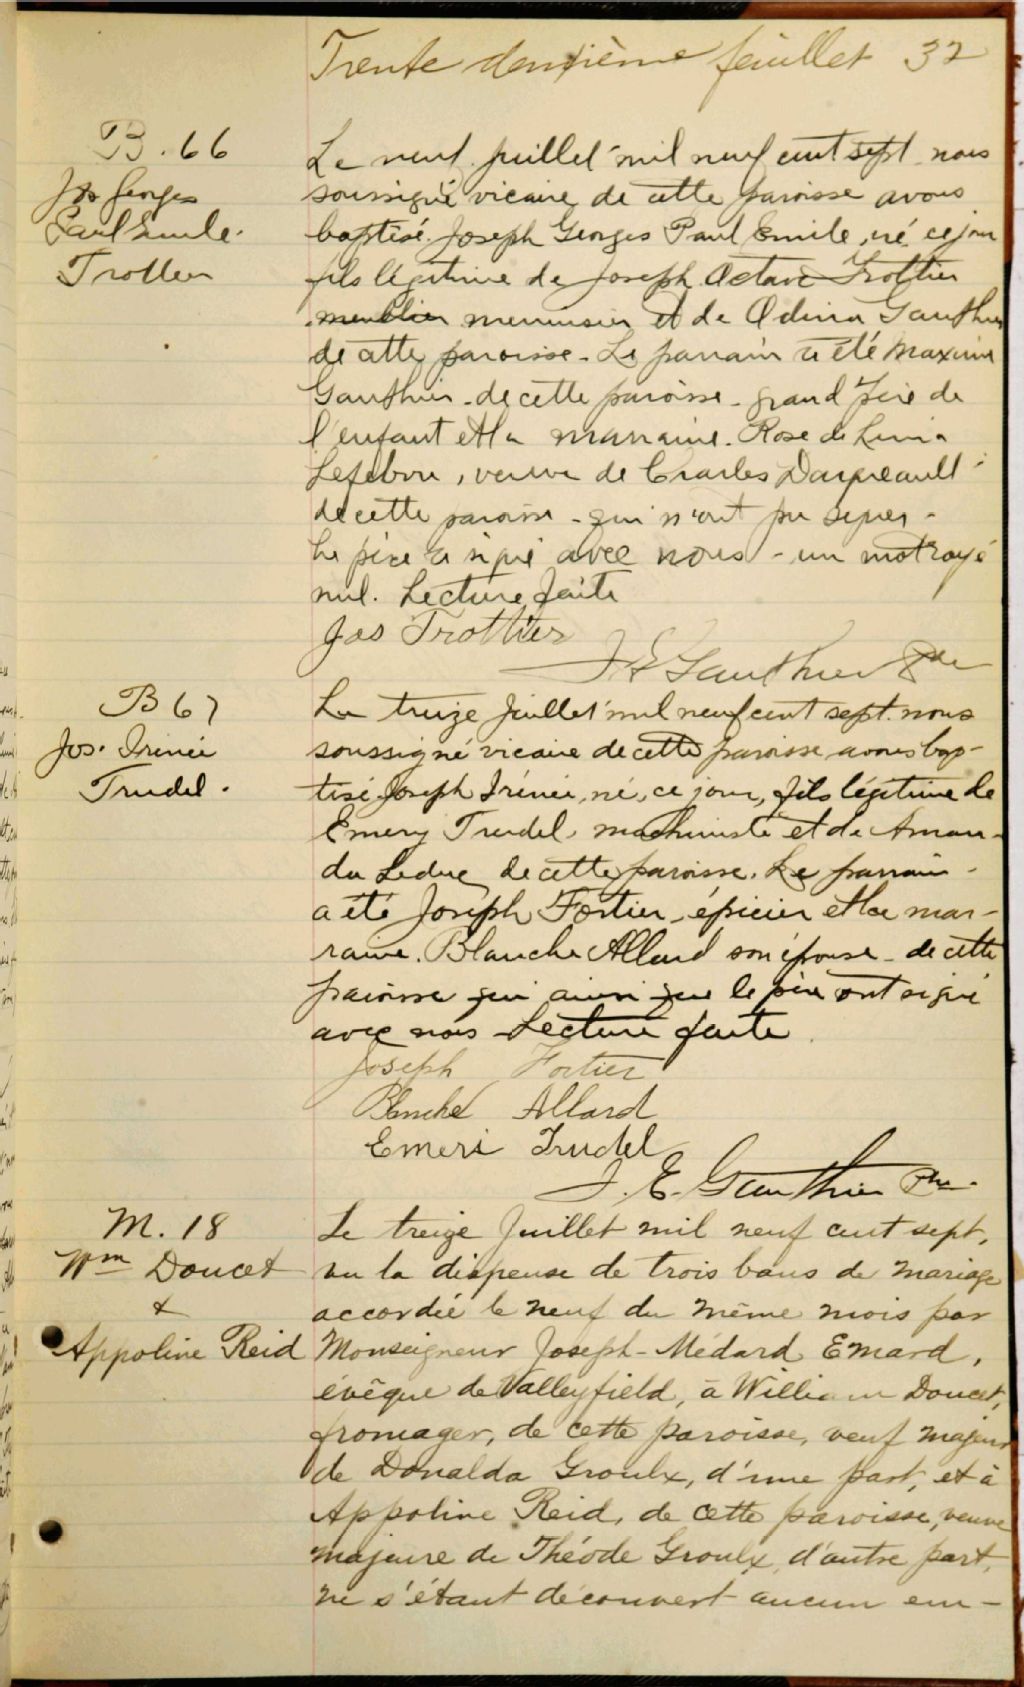 Trente deuxième feuillet 32
B. 66
Jos Georges
Paul Emile.
Trottier
Le neuf Juillet mil neuf cent sept nous
soussigné vicaire de cette paroisse avons
baptisé Joseph Georges Paul Emile, né ce jour
fils légitime de Joseph Octave Trottier
menuisier et de Odina Gauthier
de cette paroisse - Le parrain a été Maxime
Gauthier - de cette paroisse - grand père de
l'enfant et la marraine. Rose de Lima
Lefebvre, veuve de Charles
de cette paroisse - qui n'ont pu signer -
Le père a signé avec nous - un mot rayé
nul. Lecture faite
Jos Trottier
J E Gauthier Ptre
B 67
Jos. Irénée
Trudel.
Le treize Juillet mil neuf cent sept. nous
soussigné vicaire de cette paroisse avons bap-
tisé Joseph Irénée, né, ce jour, fils légitime de
Emery Trudel, machiniste et de Aman-
da Leduc de cette paroisse. Le parrain
a été Joseph Fortier, épicier et la mar-
raine. Blanche Allard son épouse - de cette
paroisse qui ainsi que le père ont signé
avec nous - Lecture faite
Joseph Fortier
Blanche Allard
Emeri Trudel
J. E. Gauthier Ptre.
M. 18
Wm Doucet
&
Appoline Reid
Le treize Juillet mil neuf cent sept,
vu la dispense de trois bans de mariage
accordée le neuf du même mois par
Monseigneur Joseph-Médard Emard,
évêque de Valleyfield, à William Doucet,
fromager, de cette paroisse, veuf majeur
de Donalda Groulx, d'une part, et à
Appoline Reid, de cette paroisse, veuve
majeure de Théode Groulx, d'autre part,
ne s'étant découvert aucun em-